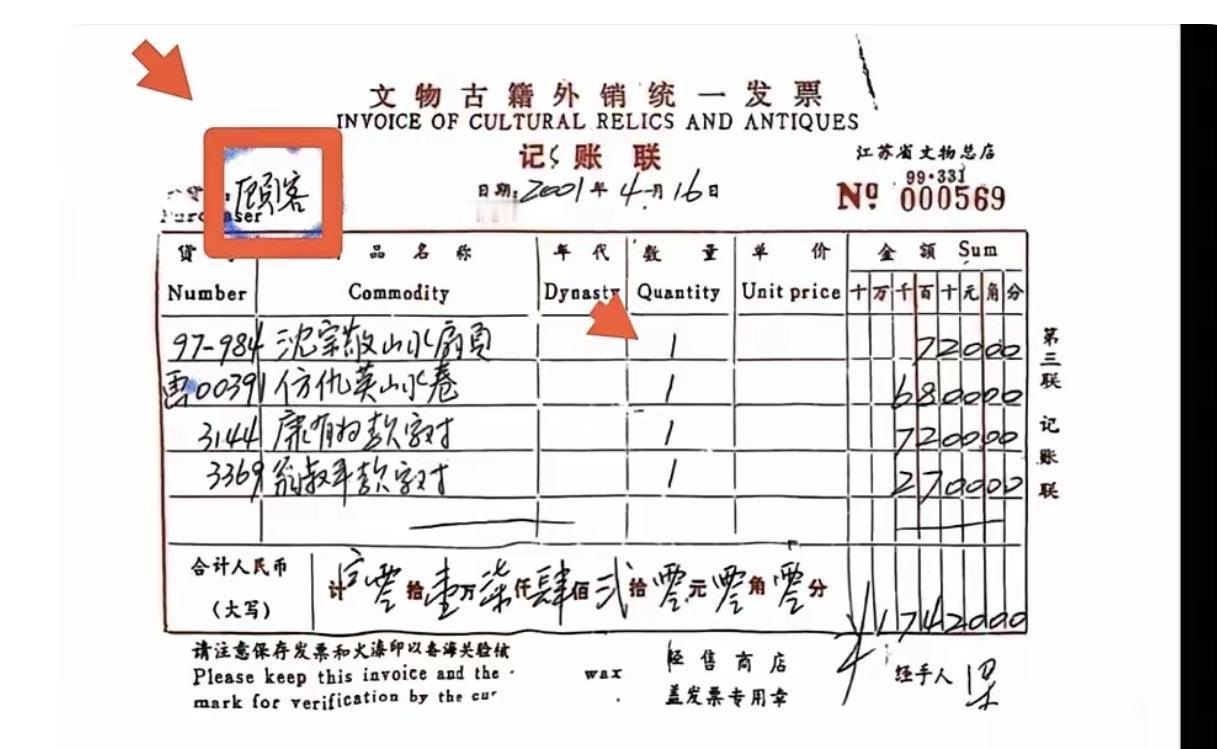 文物古籍外销统一发票
INVOICE OF CULTURAL RELICS AND ANTIQUES
记账联
江苏省文物总店
99·331
日期:2001年4月16日
Nº 000569
顾客
Purchaser
货 品名称 年代 数量 单价 金额 Sum
Number Commodity Dynasty Quantity Unit price 十万千百十元角分
97-984 沈宗敬山水扇页 1 72000
00391 仿仇英山水卷 1 680000
3144 康有为款字对 1 720000
3369 翁叔平款字对 1 270000
合计人民币
(大写)
计 零拾壹万柒仟肆佰贰拾零元零角零分
¥1742000
第三联 记账联
请注意保存发票和火漆印以备海关验核
Please keep this invoice and the wax
mark for verification by the cu
经售商店
盖发票专用章
经手人